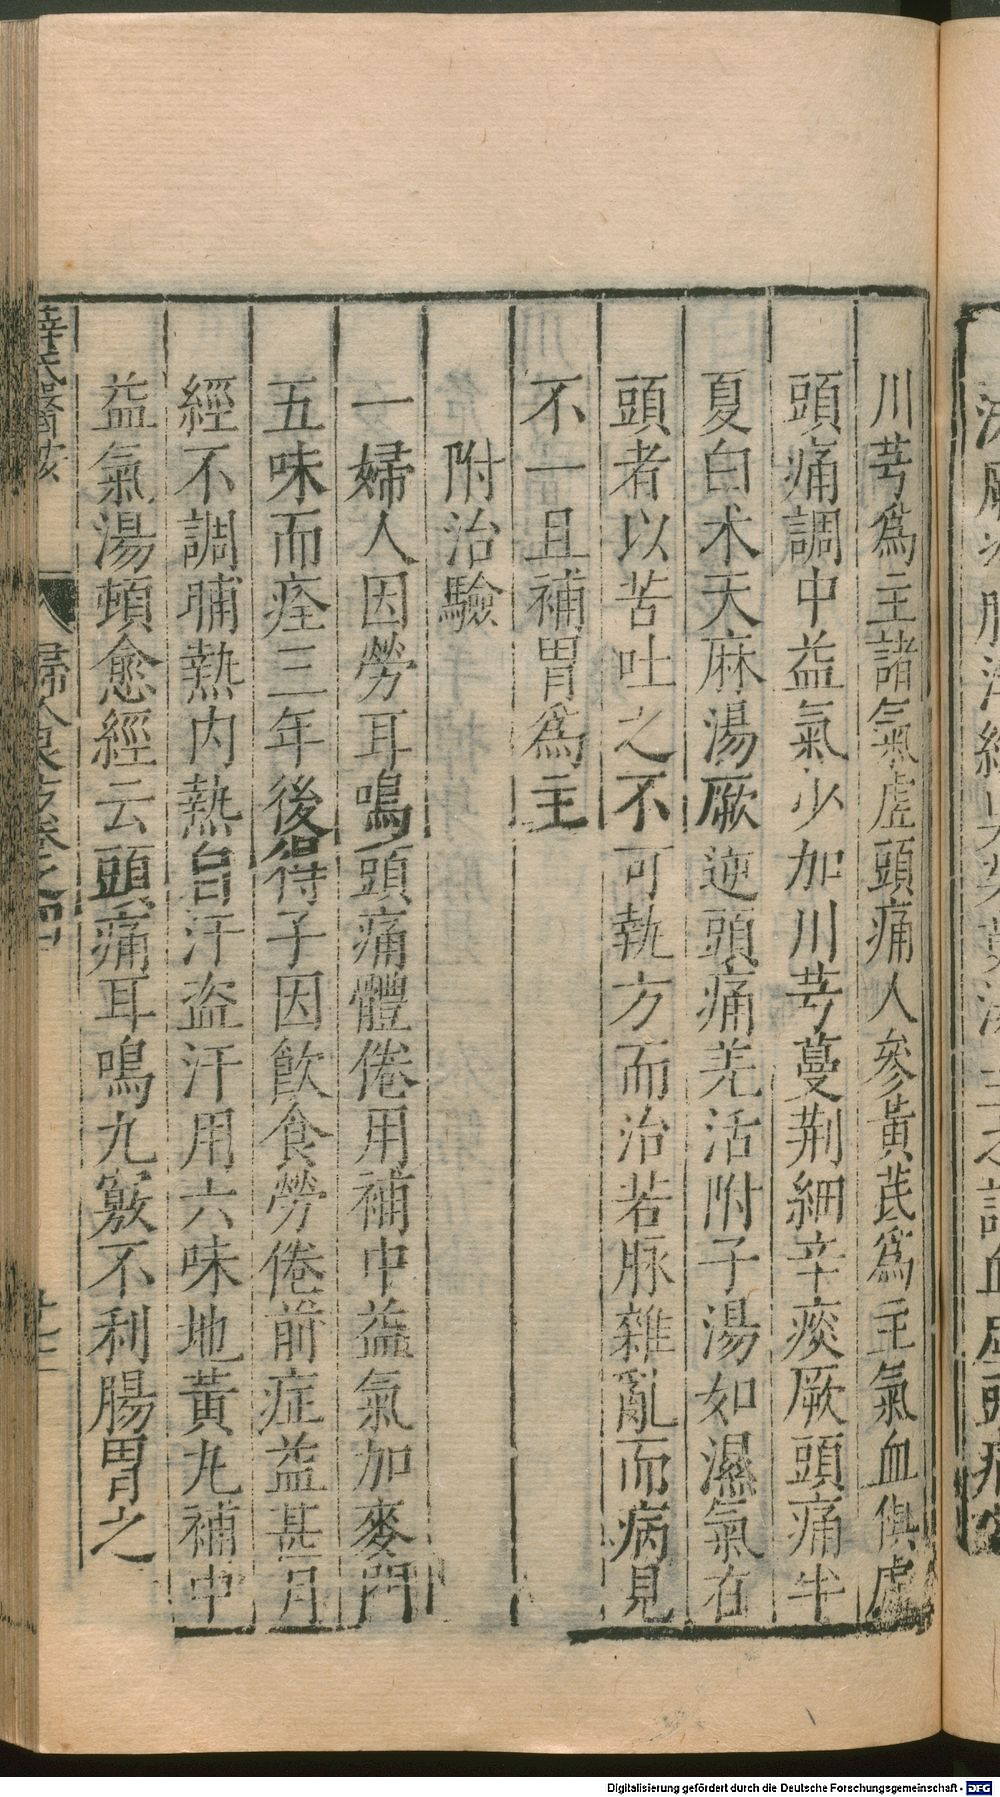 川芎爲主諸氣虛頭痛人參黃芪爲主氣血俱虛
頭痛調中益氣少加川芎蔓荆細辛痰厥頭痛半
夏白术天麻湯厥逆頭痛羌活附子湯如濕氣在
頭者以苦吐之不可執方而治若脉雜亂而病見
不一且補胃爲主
附治驗
一婦人因勞耳鳴頭痛體倦用補中益氣加麥門
五味而痊三年後得子因飲食勞倦前症益甚月
經不調晡熱内熱自汗盗汗用六味地黃丸補中
益氣湯頓愈經云頭痛耳鳴九竅不利腸胃之
薛氏醫按 婦人良方卷之四 廿七
Digitalisierung gefördert durch die Deutsche Forschungsgemeinschaft - DFG